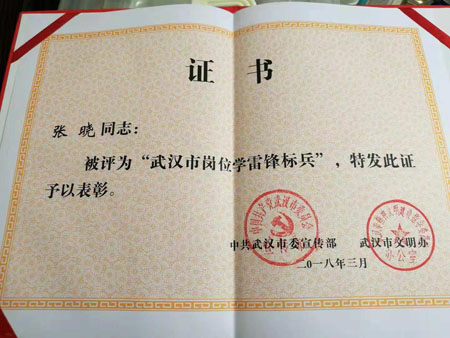 证书
张晓同志：
被评为“武汉市岗位学雷锋标兵”，特发此证
予以表彰。
中共武汉市委宣传部 武汉市文明办
二〇一八年三月